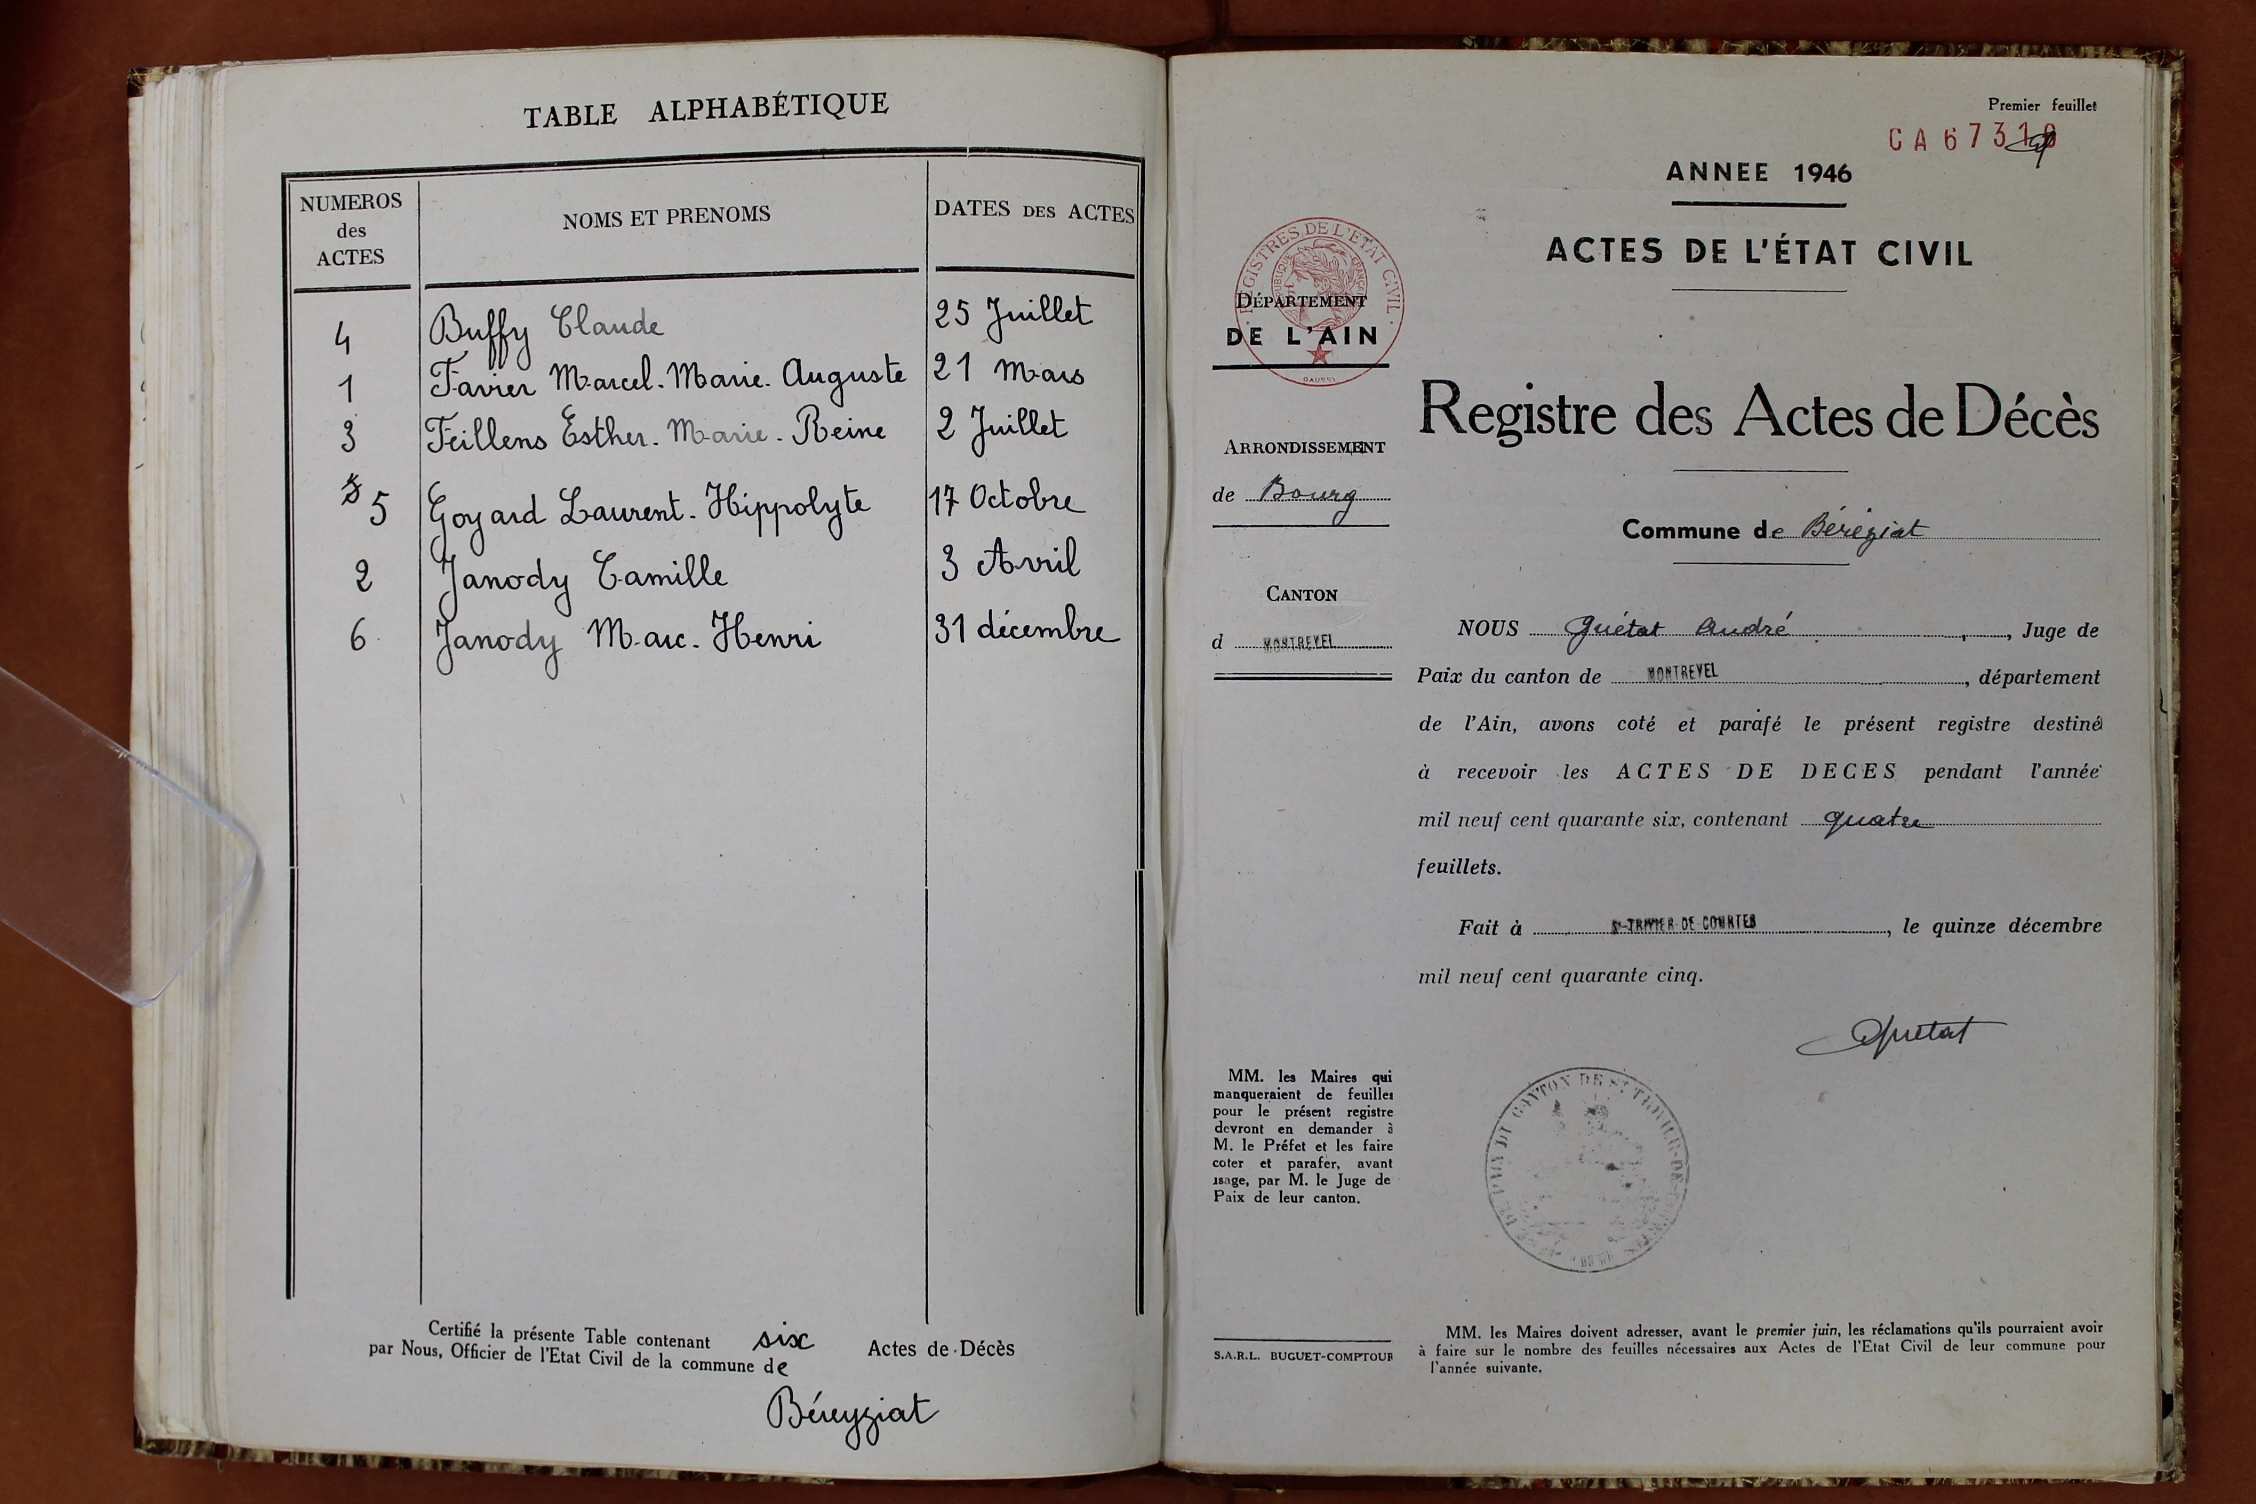 TABLE ALPHABÉTIQUE
NUMEROS des ACTES
NOMS ET PRENOMS
DATES DES ACTES
4 Buffy Claude 25 Juillet
1 Favier Marcel-Marie-Auguste 21 Mars
3 Feillens Esther-Marie-Reine 2 Juillet
5 Goyard Laurent-Hippolyte 17 Octobre
2 Janody Camille 3 Avril
6 Janody Marc-Henri 31 décembre
Certifié la présente Table contenant six Actes de Décès
par Nous, Officier de l'Etat Civil de la commune de
Béreyziat
Premier feuillet
CA 6731
ANNEE 1946
ACTES DE L'ÉTAT CIVIL
REGISTRES DE L'ETAT CIVIL
RÉPUBLIQUE FRANÇAISE
DÉPARTEMENT
DE L'AIN
ARRONDISSEMENT
de Bourg
CANTON
d MONTREVEL
Registre des Actes de Décès
Commune de Béréziat
NOUS Guétat André, Juge de
Paix du canton de MONTREVEL, département
de l'Ain, avons coté et parafé le présent registre destiné
à recevoir les ACTES DE DECES pendant l'année
mil neuf cent quarante six, contenant quatre
feuillets.
Fait à St-TRIVIER-DE-COURTES, le quinze décembre
mil neuf cent quarante cinq.
Guétat
MM. les Maires qui
manqueraient de feuilles
pour le présent registre
devront en demander à
M. le Préfet et les faire
coter et parafer, avant
usage, par M. le Juge de
Paix de leur canton.
DU CANTON DE St TRIVIER-DE-
S.A.R.L. BUGUET-COMPTOUR
MM. les Maires doivent adresser, avant le premier juin, les réclamations qu'ils pourraient avoir
à faire sur le nombre des feuilles nécessaires aux Actes de l'Etat Civil de leur commune pour
l'année suivante.